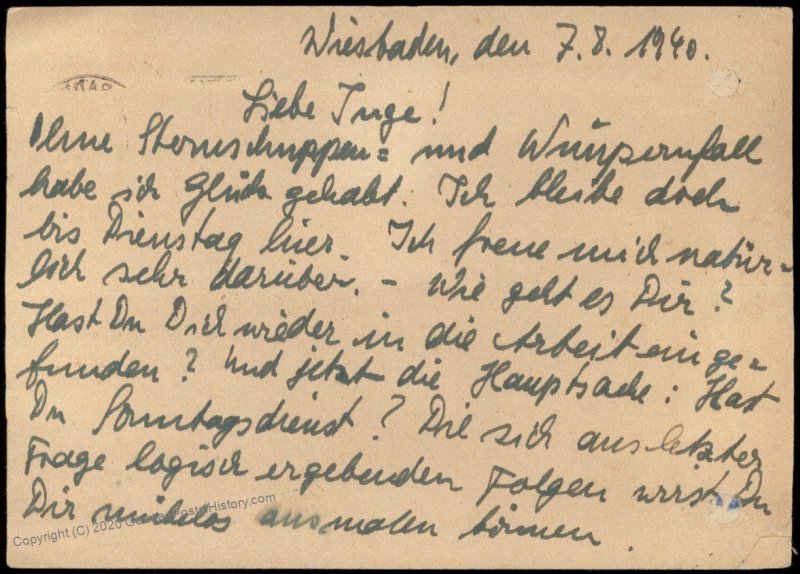 Wiesbaden, den 7.8.1940.
Liebe Inge!
Ohne Sternschnuppen= und Wimpernfall
habe ich Glück gehabt. Ich bleibe doch
bis Dienstag hier. Ich freue mich natür=
lich sehr darüber. – Wie geht es Dir?
Hast Du Dich wieder in die Arbeit einge=
funden? Und jetzt die Hauptsache: Hast
Du Sonntagsdienst? Die sich aus letzter
Frage logisch ergebenden Folgen wirst Du
Dir mühelos ausmalen können.
Copyright (C) 2020 GermanPostalHistory.com